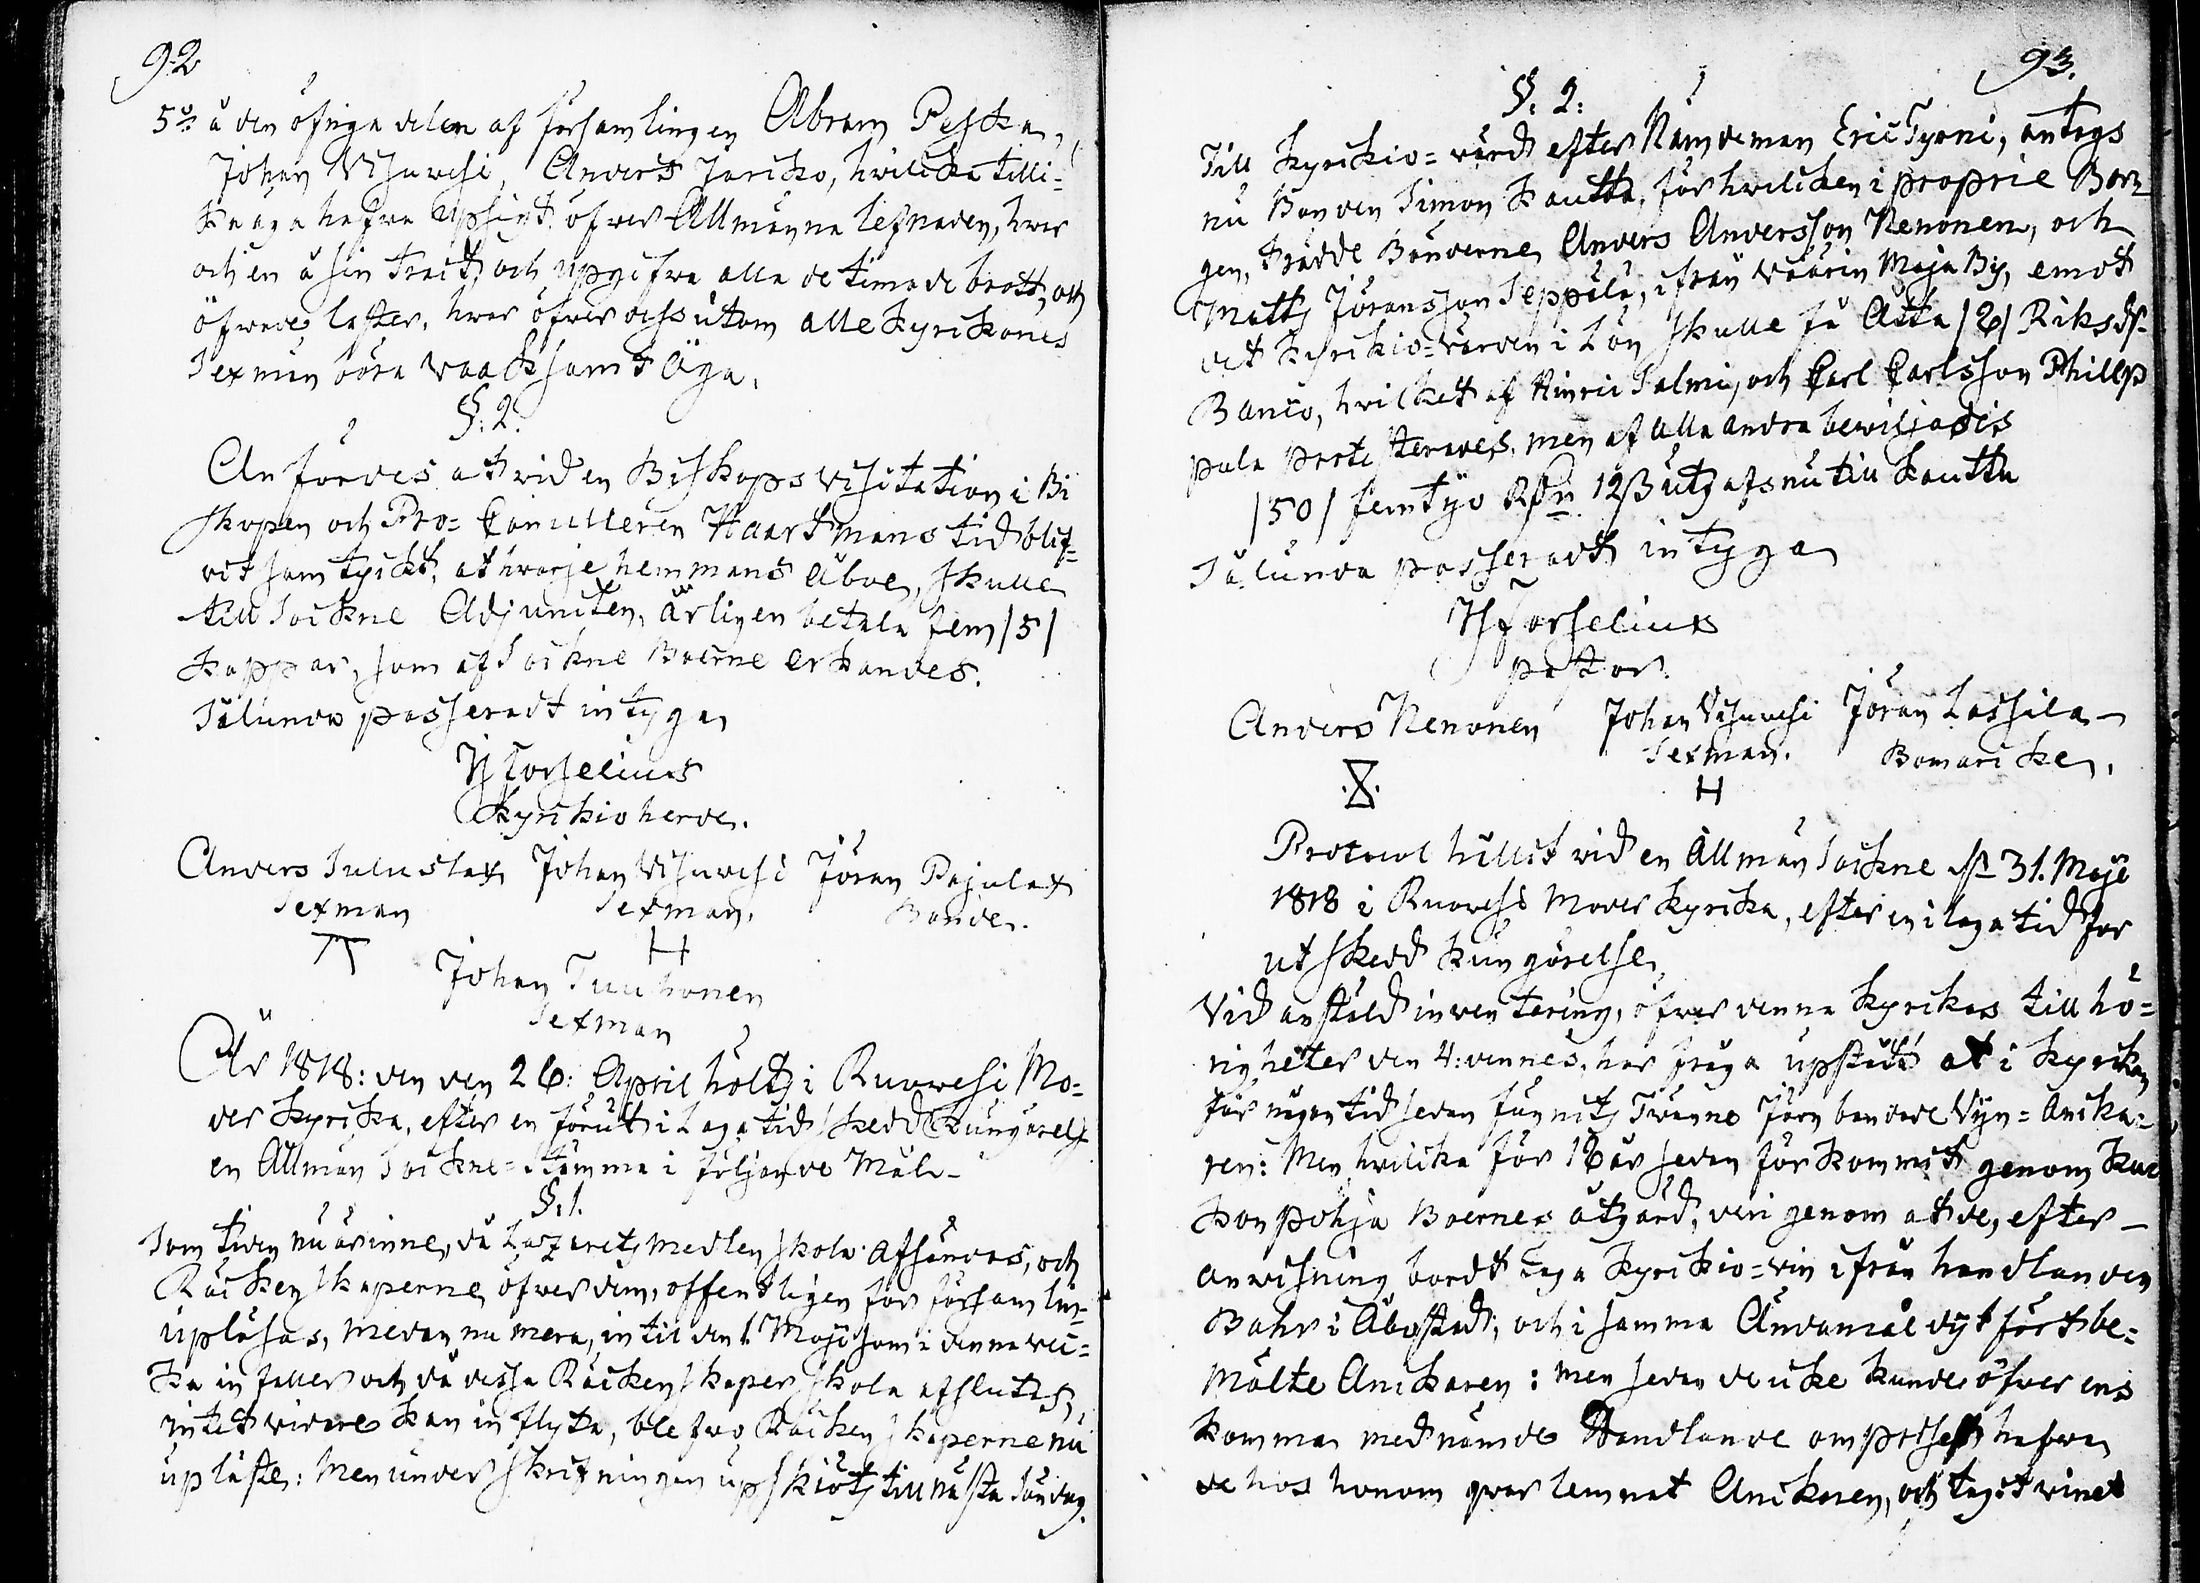 92
5:o å den öfriga delen af Församlingen Abram Peska,
Johan Visuvesi, Anders Jaricko, hvilcka tilli=
ka äga hafva Upsigt öfver Allmänna lefnaden, hvar
och en å sin tract, och upgifva alla de timade brott, och
öfvade laster, hvar öfver dessutom alle Kyrckones
Sexmän böra vaacksamt Öga.
§. 2.
Anfördes at vid en Biskops Visitation i Bi
skopen och Pro= Cancelleren Haartmans tid blif=
vit samtyckt, at hvarje hemmans Åboe, skulle
till Sockne Adjuncten, årligen betala fem /5/
kappar, som af Sockne Boerne erkändes.
Sålunda passeradt intyga
H Forselius
Kyrckioherde.
Anders Suluslax Johan Visuvesi Jöran Pajulax
Sexman Sexman. Bonde.
H
Johan Tuuhonen
Sexman
År 1818: den den 26: April hölts i Ruovesi Mo=
der Kyrcka, efter en förut i Laga tid skedd Kungörelse
en Allmän Sockne=Stämma i följande Mål
§. 1.
Som tiden nu är inne, då Lazarets medlen skola afsändas, och
Räckenskaperne öfver dem, offentligen för Församlin=
upläsas, medan nu mera, in til den 1. Maji som i denna vec=
ka infaller och då dessa Räckenskaper skola afslutas,
intet vidare kan inflyta, blefvo Räckenskaperne nu
upläste: Men underskrifningen upskiöts till nästa Söndag.
93.
§. 2:
Till Kyrckio=värd efter Nämdeman Eric Tyrni, antogs
nu Bonden Simon Kautta, för hvilcken i proprie Bor=
gen, trädde Bönderne Anders Andersson Nenonen, och
Matts Jöransson Seppälä, ifrån Väärin Maja By, emot
det Kyrckio=värden i Lön skulle få Åtta /8/ Riksd:r
Banco, hvilcket af Hinric Salmi, och Carl Carlsson Phillp
pala protesterades, men af alla andra beviljades
/50/ femtijo R:d:r 12 ß utgafs nu till Kautta
Sålunda passeradt intyga
H Forselius
pastor.
Anders Nenonen Johan Visuvesi Jöran Lassila
Sexman. Bomarcken.
H
Protocol hållit vid en Allmän Sockne d: 31. Maji
1818 i Ruovesi Moder Kyrcka, efter en i laga tid for
ut skedd kungörelse
Vid anstäld inventering, öfver denna Kyrckas till hö=
righeter den 4: dennes, har fråga upstådt at i Kyrckan
för någon tid sedan funnits Tvänne Järn bandade Vijn=Ancka=
ren: Men hvilcka för 18 år sedan förkommit genom Kuc
konpohja Boernes åtgärd, deri genom at de, efter
anvisning bordt taga Kyrckio=vin ifrån handlanden
Bahr i Åbo stad, och i samma Ändamål dijt fört be=
mälte Anckaren: men sedan de icke kunde öfver ens
komma med nämde Handlande om priset hafva
de hos honom qvar lemnat Anckaren, och tagit vinet